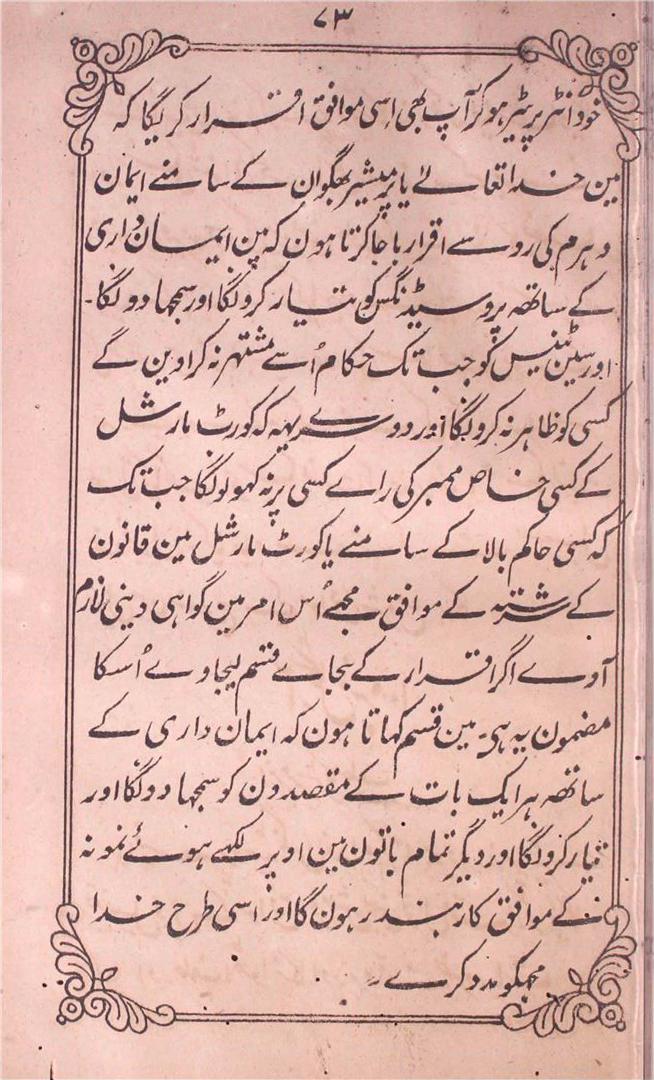 ۷۳
خود انٹرپریٹیر ہو کر آپ بھی اسی موافق اقرار کریگا کہ
مین خدا تعالے یا پرمیشیر بھگوان کے سامنے ایمان
دہرم کی رو سے اقرار باجا کرتا ہون کہ مین ایمان داری
کے ساتھہ پروسیڈنگس کو تیار کرونگا اور سمجہا دونگا۔
اور سین ٹینس کو جب تک حکام اُسے مشتہر نہ کراوین گے
کسی کو ظاہر نہ کرونگا اور دوسرے یہہ کہ کورٹ مارشل
کے کسی خاص ممبر کی راے کسی پر نہ کھولونگا جب تک
کہ کسی حاکم بالا کے سامنے یا کورٹ مارشل مین قانون
کے سررشتہ کے موافق مجھے اُس امر مین گواہی دینی لازم
آوے اگر اقرار کے بجاے قسم لیجاوے اُسکا
مضمون یہ ہی۔ مین قسم کہاتا ہون کہ ایمان داری کے
ساتھہ ہر ایک بات کے مقصدون کو سمجہا دونگا اور
تیار کرونگا اور دیگر تمام باتون مین اوپر لکھے ہوئے نمونہ
کے موافق کاربند رہون گا اور اسی طرح خدا
مجہکو مدد کرے۔